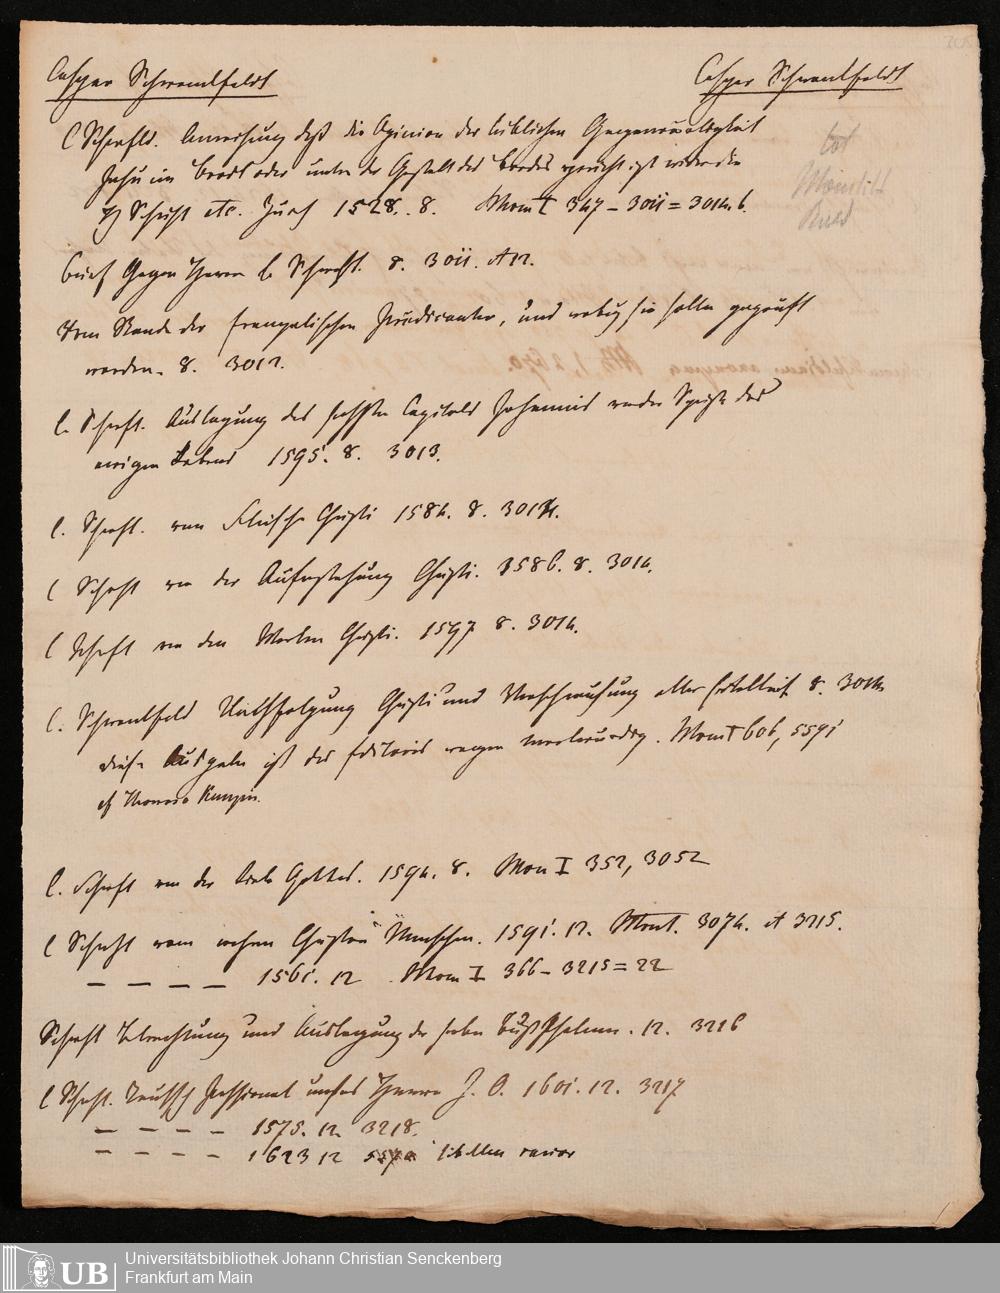 Casper Schwenkfeldt Casper Schwenkfeldt
C Schwfld. Anweisung daß die Opinion der leiblichen Gegenwärtigkeit
Jesu im Brodt oder unter der Gestalt des Brodes gericht ist wider die
H Schrift etc. Zürch 1528. 8. Mom I 347 – 3011 = 3014 b.
tot
Brief Gegen Herrn C Schweft. 8. 3011. et 12.
Vom Stande der Evangelischen Prædicanten, und wobey sie sollen geprüft
werden. 8. 3012.
C. Schweft. Auslegung des sechsten Capitels Johannis von der Speise des
ewigen Lebens 1595. 8. 3013.
C. Schweft. vom Fleische Christi 1584. 8. 3014.
C Schweft von der Auferstehung Christi. 1586. 8. 3014.
C Schweft von den Worten Christi. 1597 8. 3014.
C. Schwenkfeld Nachfolgung Christi und Verschmehung aller Eitelkeit 8. 3014
diese Ausgabe ist des Editoris wegen merkwürdig. Mom I 606, 5591
cf Thomas Kempis.
C. Schweft von der Liebe Gottes. 1594. 8. Mom I 352, 3052
C Schweft vom wahren Christen Menschen. 1591. 12. 3074. et 3215.
— — — — 1561. 12. Mom I 366 – 3215 = 22
Schweft Betrachtung und Auslegung der sieben Bußpsalmen. 12. 3216
C Schweft. Teutsch Passional unsers Herrn J. C. 1601. 12. 3217
— — — — 1575. 12. 3218.
— — — — 1623 12 libellus rarior
Universitätsbibliothek Johann Christian Senckenberg
UB Frankfurt am Main